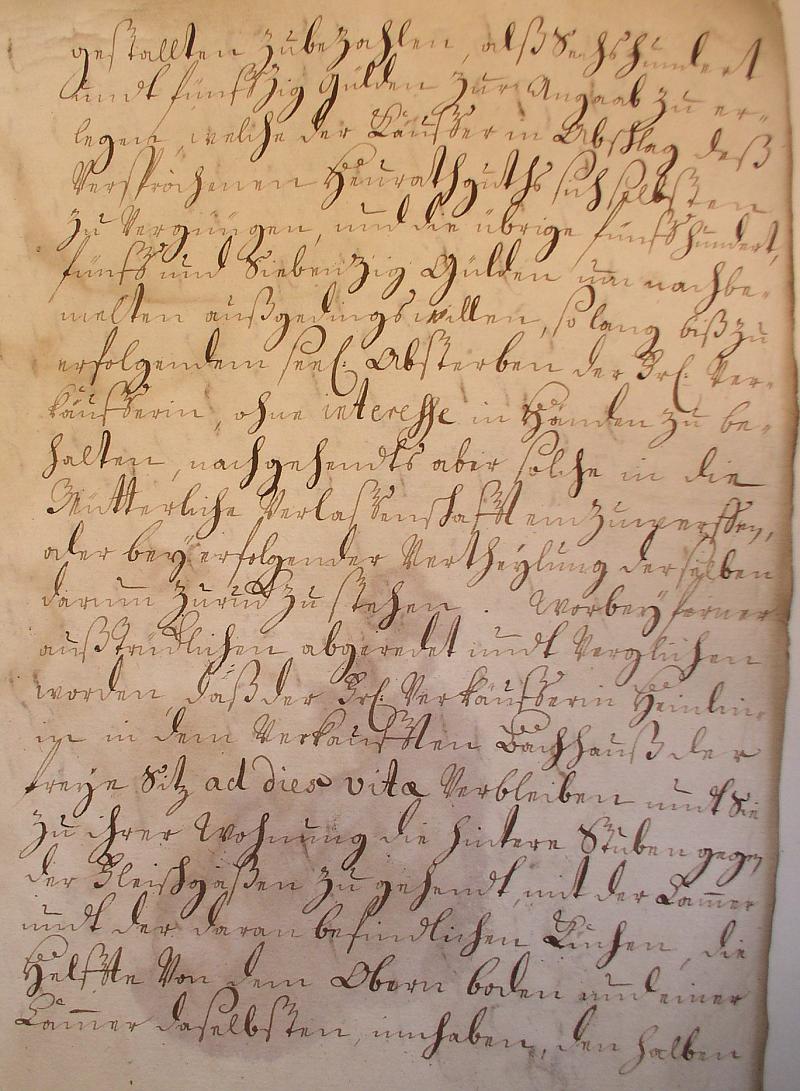 gestallten zubezahlen, alß Sechshundert
undt fünffzig Gulden zur Angaab zu er-
legen, welche der Käuffer in Abschlag deß
Versprochenen Heurathguths sich selbsten
zu Vergnügen, und die übrige fünffhundert,
fünff und Siebenzig Gülden um nachbe-
melten außgedings willen, so lang biß zu
erfolgendem seel: Absterben der Frl: Ver-
käufferin, ohne interesse in Händen zu be-
halten, nachgehendts aber solche in die
Mütterliche Verlassenschafft einzuwerffen,
oder bey erfolgender Vertheylung derselben
darum zuruck zu stehen. Worbey ferner
außtrücklichen abgeredet undt Verglichen
worden, daß der Frl: Verkäufferin Heinlin-
in in dem Verkaufften Bachhauß der
freye Sitz ad dies vitæ Verbleiben undt Sie
zu ihrer Wohnung die hintere Stuben gegen
der Fleischgaßen zu gehendt, mit der Cam̄er
undt der daran befindlichen Kuchen, die
Helffte Von dem Obern boden und einer
Cam̄er daselbsten, innhaben, den halben